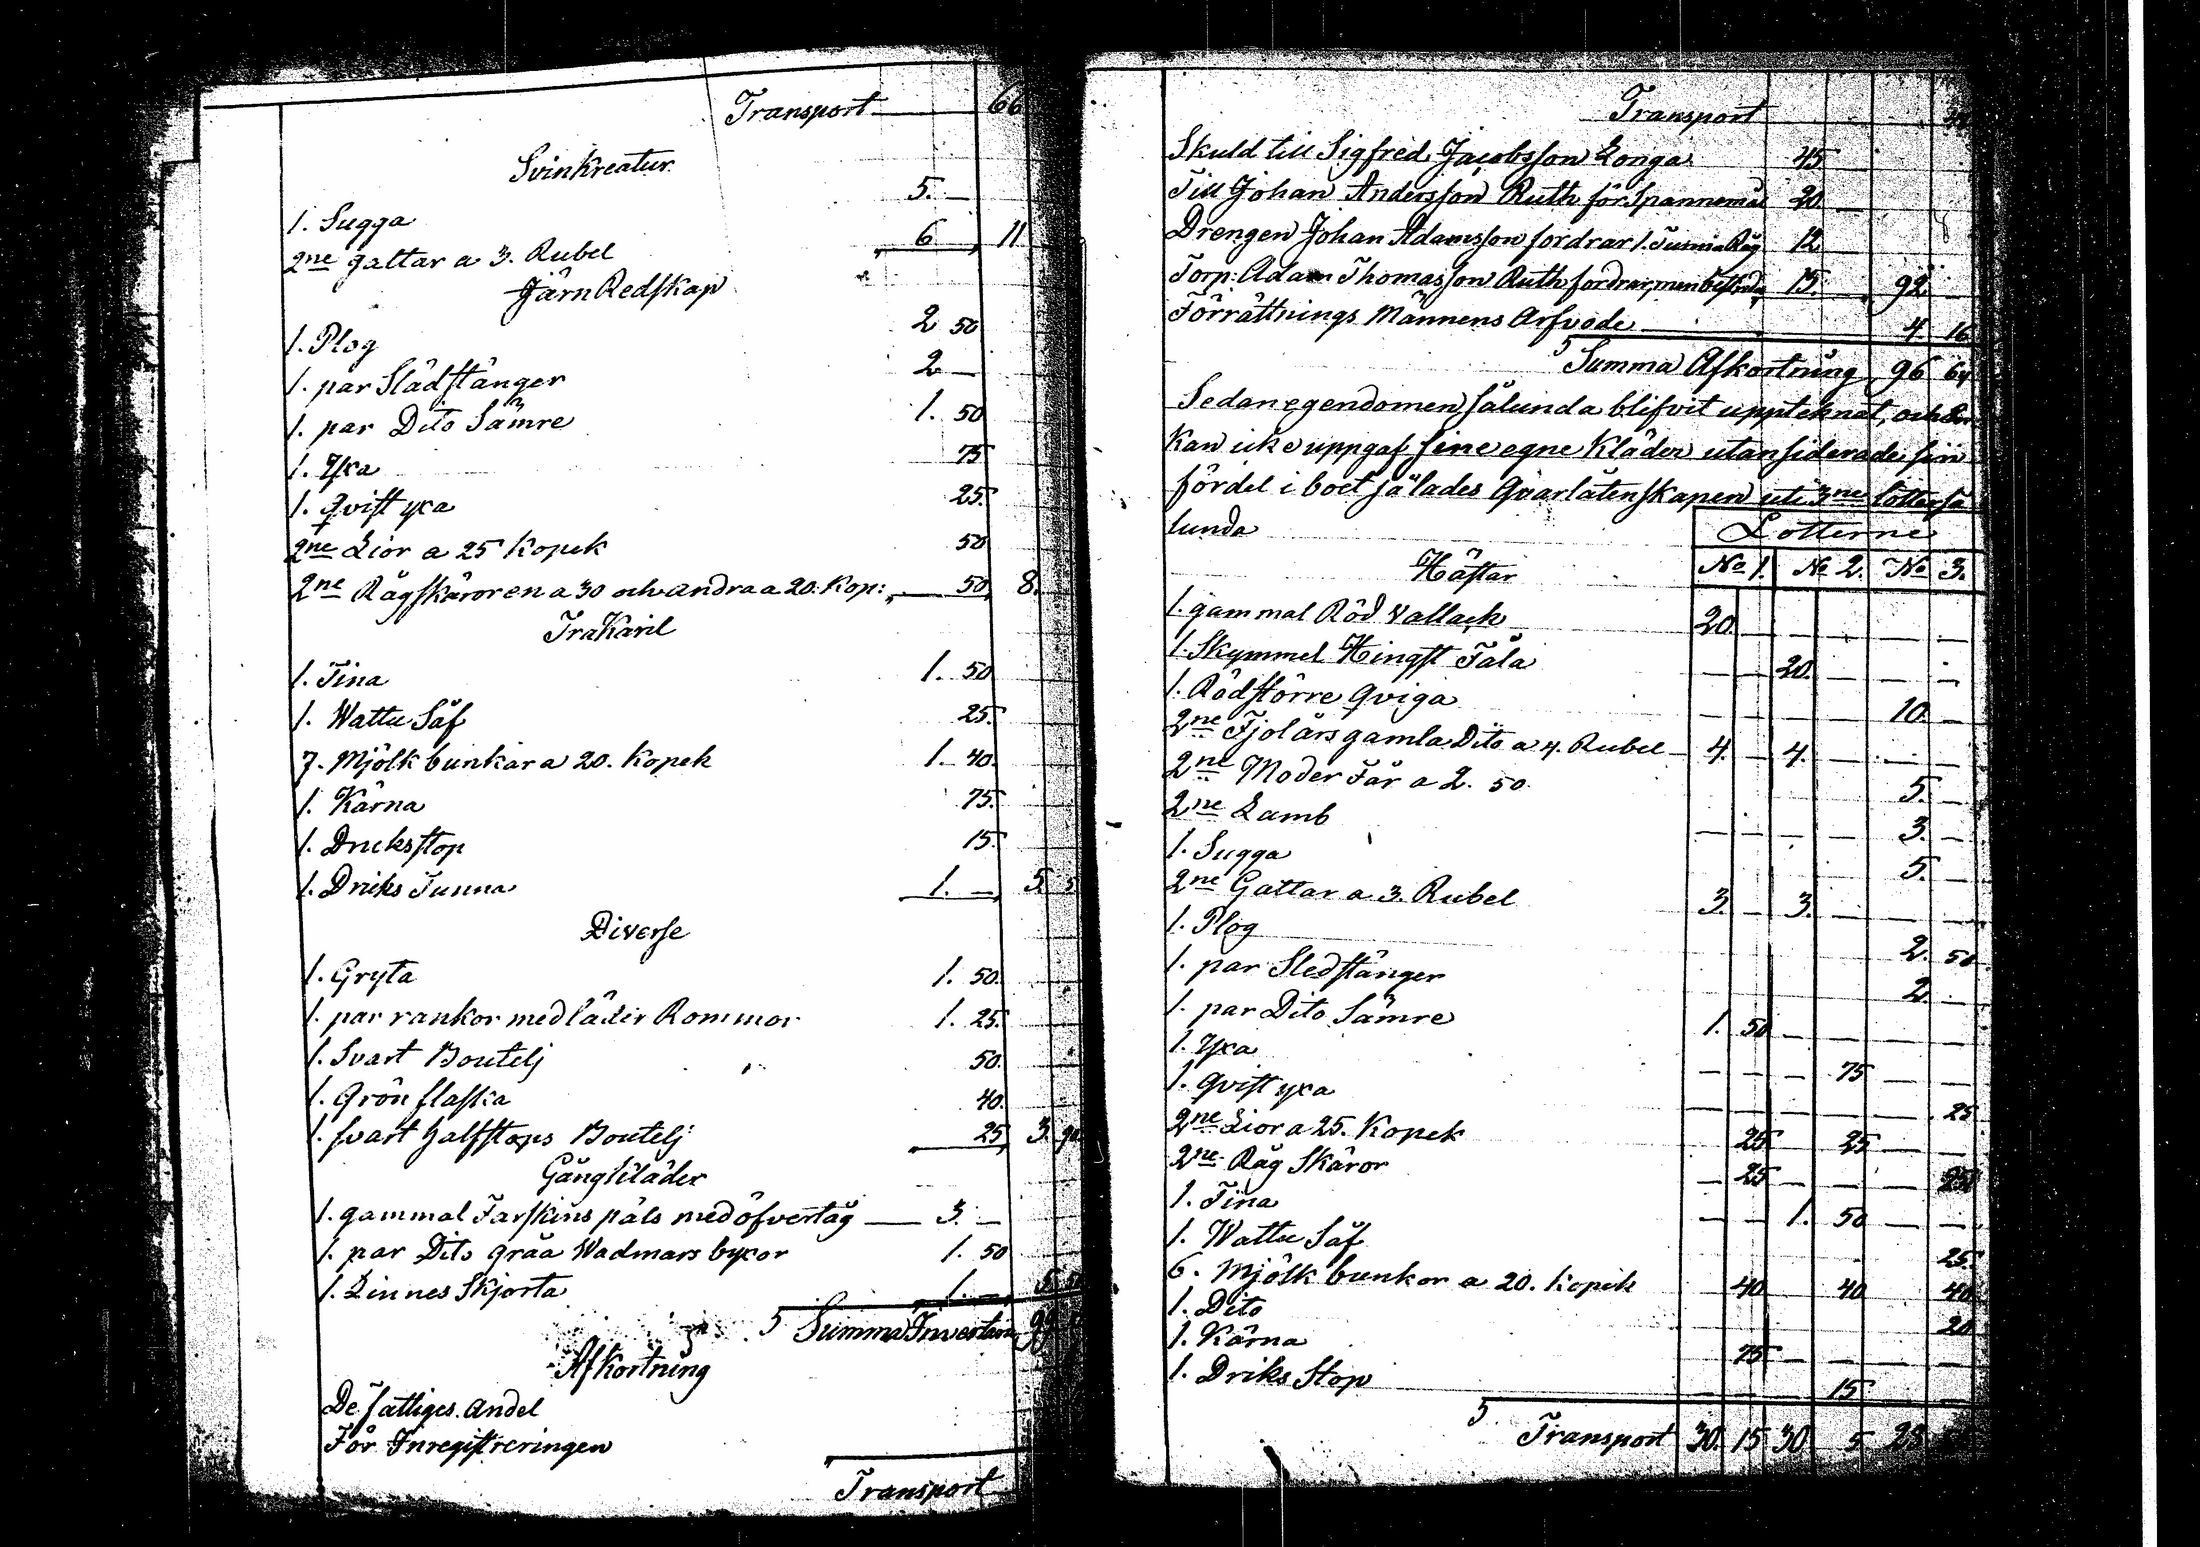 Transport 66
Svinkreatur
1. Sugga 5. —
2ne galtar a 3. Rubel 6 11
Järn Redskap
1. Plog 2 50
1. par Slädstänger 2 —
1. par Dito Sämre 1. 50
1. Yxa 75
1. Qvist yxa 25.
2ne Lior a 25 Kopek 50
2ne Rågskäror en a 30 och andra a 20. Kop: 50 8.
Träkäril
1. Tina 1. 50
1. Wattu Såf 25.
7. Mjölk bunkar a 20. Kopek 1. 40.
1. Kärna 75.
1. Driksstop 15.
1. Driks Tunna 1. — 5. 5
Diverse
1. Gryta 1. 50.
1. par rankor med läder Rommor 1. 25.
1. Svart Boutelj 50.
1. Grön flaska 40.
1. svart halfstops Boutelj 25 3. 90
Gångkläder
1. gammal Fårskins päls med öfvertåg 3. —
1. par Dito gråa Wadmars byxor 1. 50
1. Linnes Skjorta 1. — 5. 50
Summa Inventarii 99
Afkortning
De fattiges andel
För Inregistreringen
Transport
Transport
Skuld till Sigfred Jacobsson Longa 45
Till Johan Andersson Ruth för Spannemål 20. —
Drengen Johan Adamsson fordrar 1. Tunna Råg 12
Torp: Adam Thomasson Ruth fordrar, men bestrides 15. 92
Förrättnings Männens Arfvode 4. 16
Summa Afkortning 96 64
Sedan egendomen sålunda blifvit uppteknat, och
Kan icke uppgaf sine egne Kläder utan siderade sin
fördel i boetså lades Qvarlåtenskapen uti 3ne lotter så
lunda
Lotterne
Hästar No 1. No 2. No 3.
1. gammal Röd Vallack 20. — — — — —
1. Skymmel Hingst Fåla — — 20. — — —
1. Röd större Qviga — — — — 10. —
2ne Fjolårsgamla Dito a 4. Rubel 4. — 4. — — —
2ne Moder Får a 2. 50. 5. —
2ne Lamb — — — — 3. —
1. Sugga 5. —
2ne Galtar a 3. Rubel 3. — 3. — — —
1. Plog 2. 50
1. par Slädstänger 2. —
1. par Dito Sämre 1. 50 — — — —
1. Yxa — — — 75 — —
1. Qvist yxa — — — — — 25
2ne Lior a 25. Kopek — 25 — 25 — —
2ne Råg Skäror — 25 — — — 25
1. Tina — — 1. 50 — —
1. Wattu Såf 25.
6. Mjölk bunkor a 20. Kopek 40 40 40
1. Dito 20
1. Kärna 75 — — — —
1. Driks Stop — — — 15 — —
Transport 30. 15 30 5 28